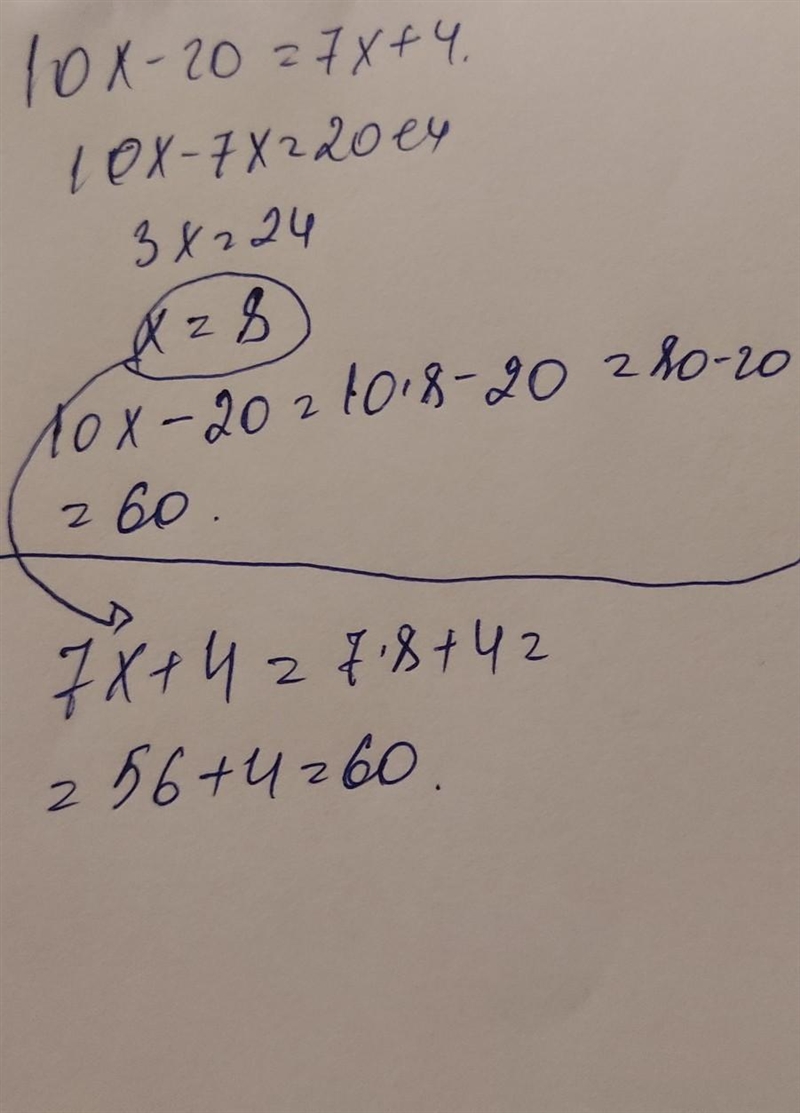 10x-20=7x+4.
10x-7x=20+4
3x=24
x=8
10x-20=10·8-20=80-20
=60.
7x+4=7·8+4=
=56+4=60.